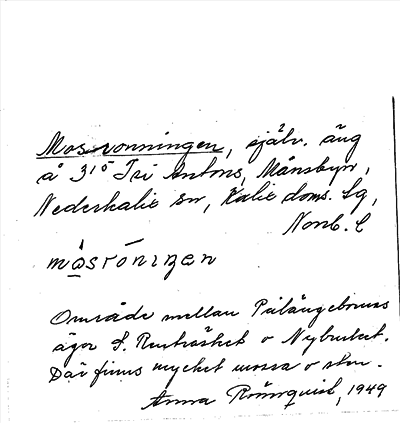 Mossronningen, självs. äng
å 3¹⁰ Tri Antons, Månsbyn,
Nederkalix sn, Kalix doms. lg,
Norrb. l
måsróningen
Område mellan Pålängebornas
ägor S. Renträsket o Nybruket.
Där finns mycket mossa o sten.
Anna Rönnquist, 1949